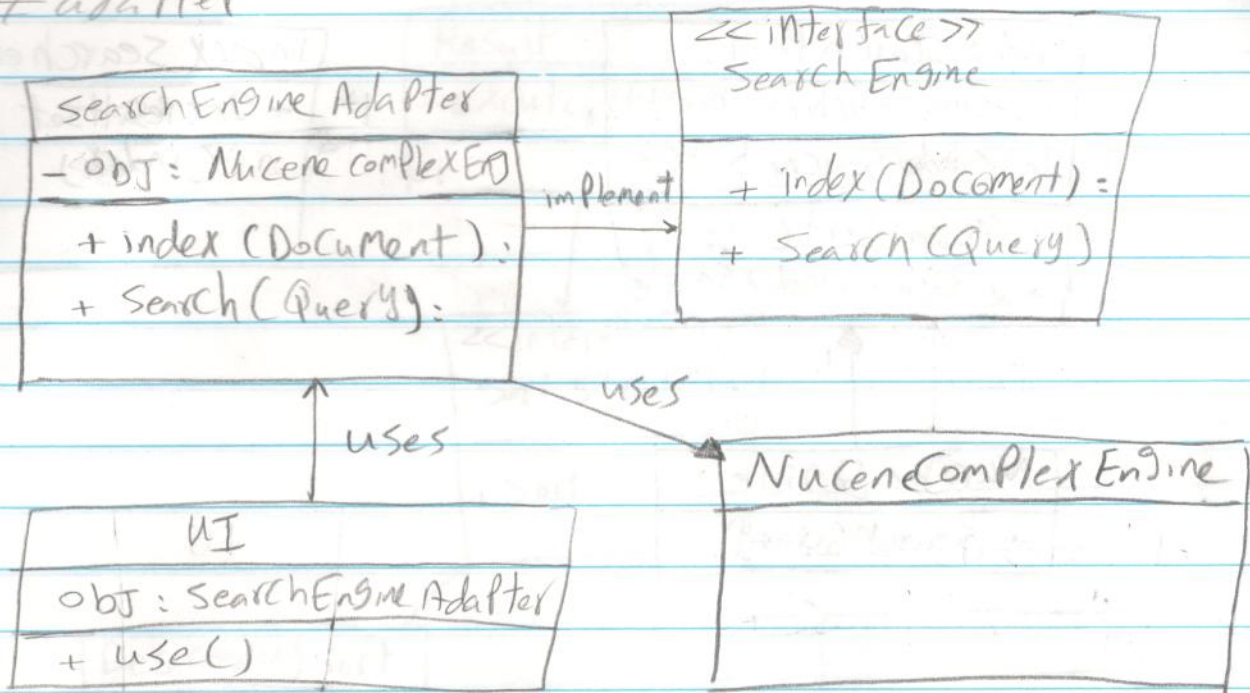 adapter
SearchEngine Adapter
- obj: Nucene complexEn
+ index (Document):
+ Search (Query):
implement
<<interface>>
Search Engine
+ index (Docoment):
+ Search (Query)
uses
uses
NuceneComplex Engine
UI
obj: SearchEngine Adapter
+ use()